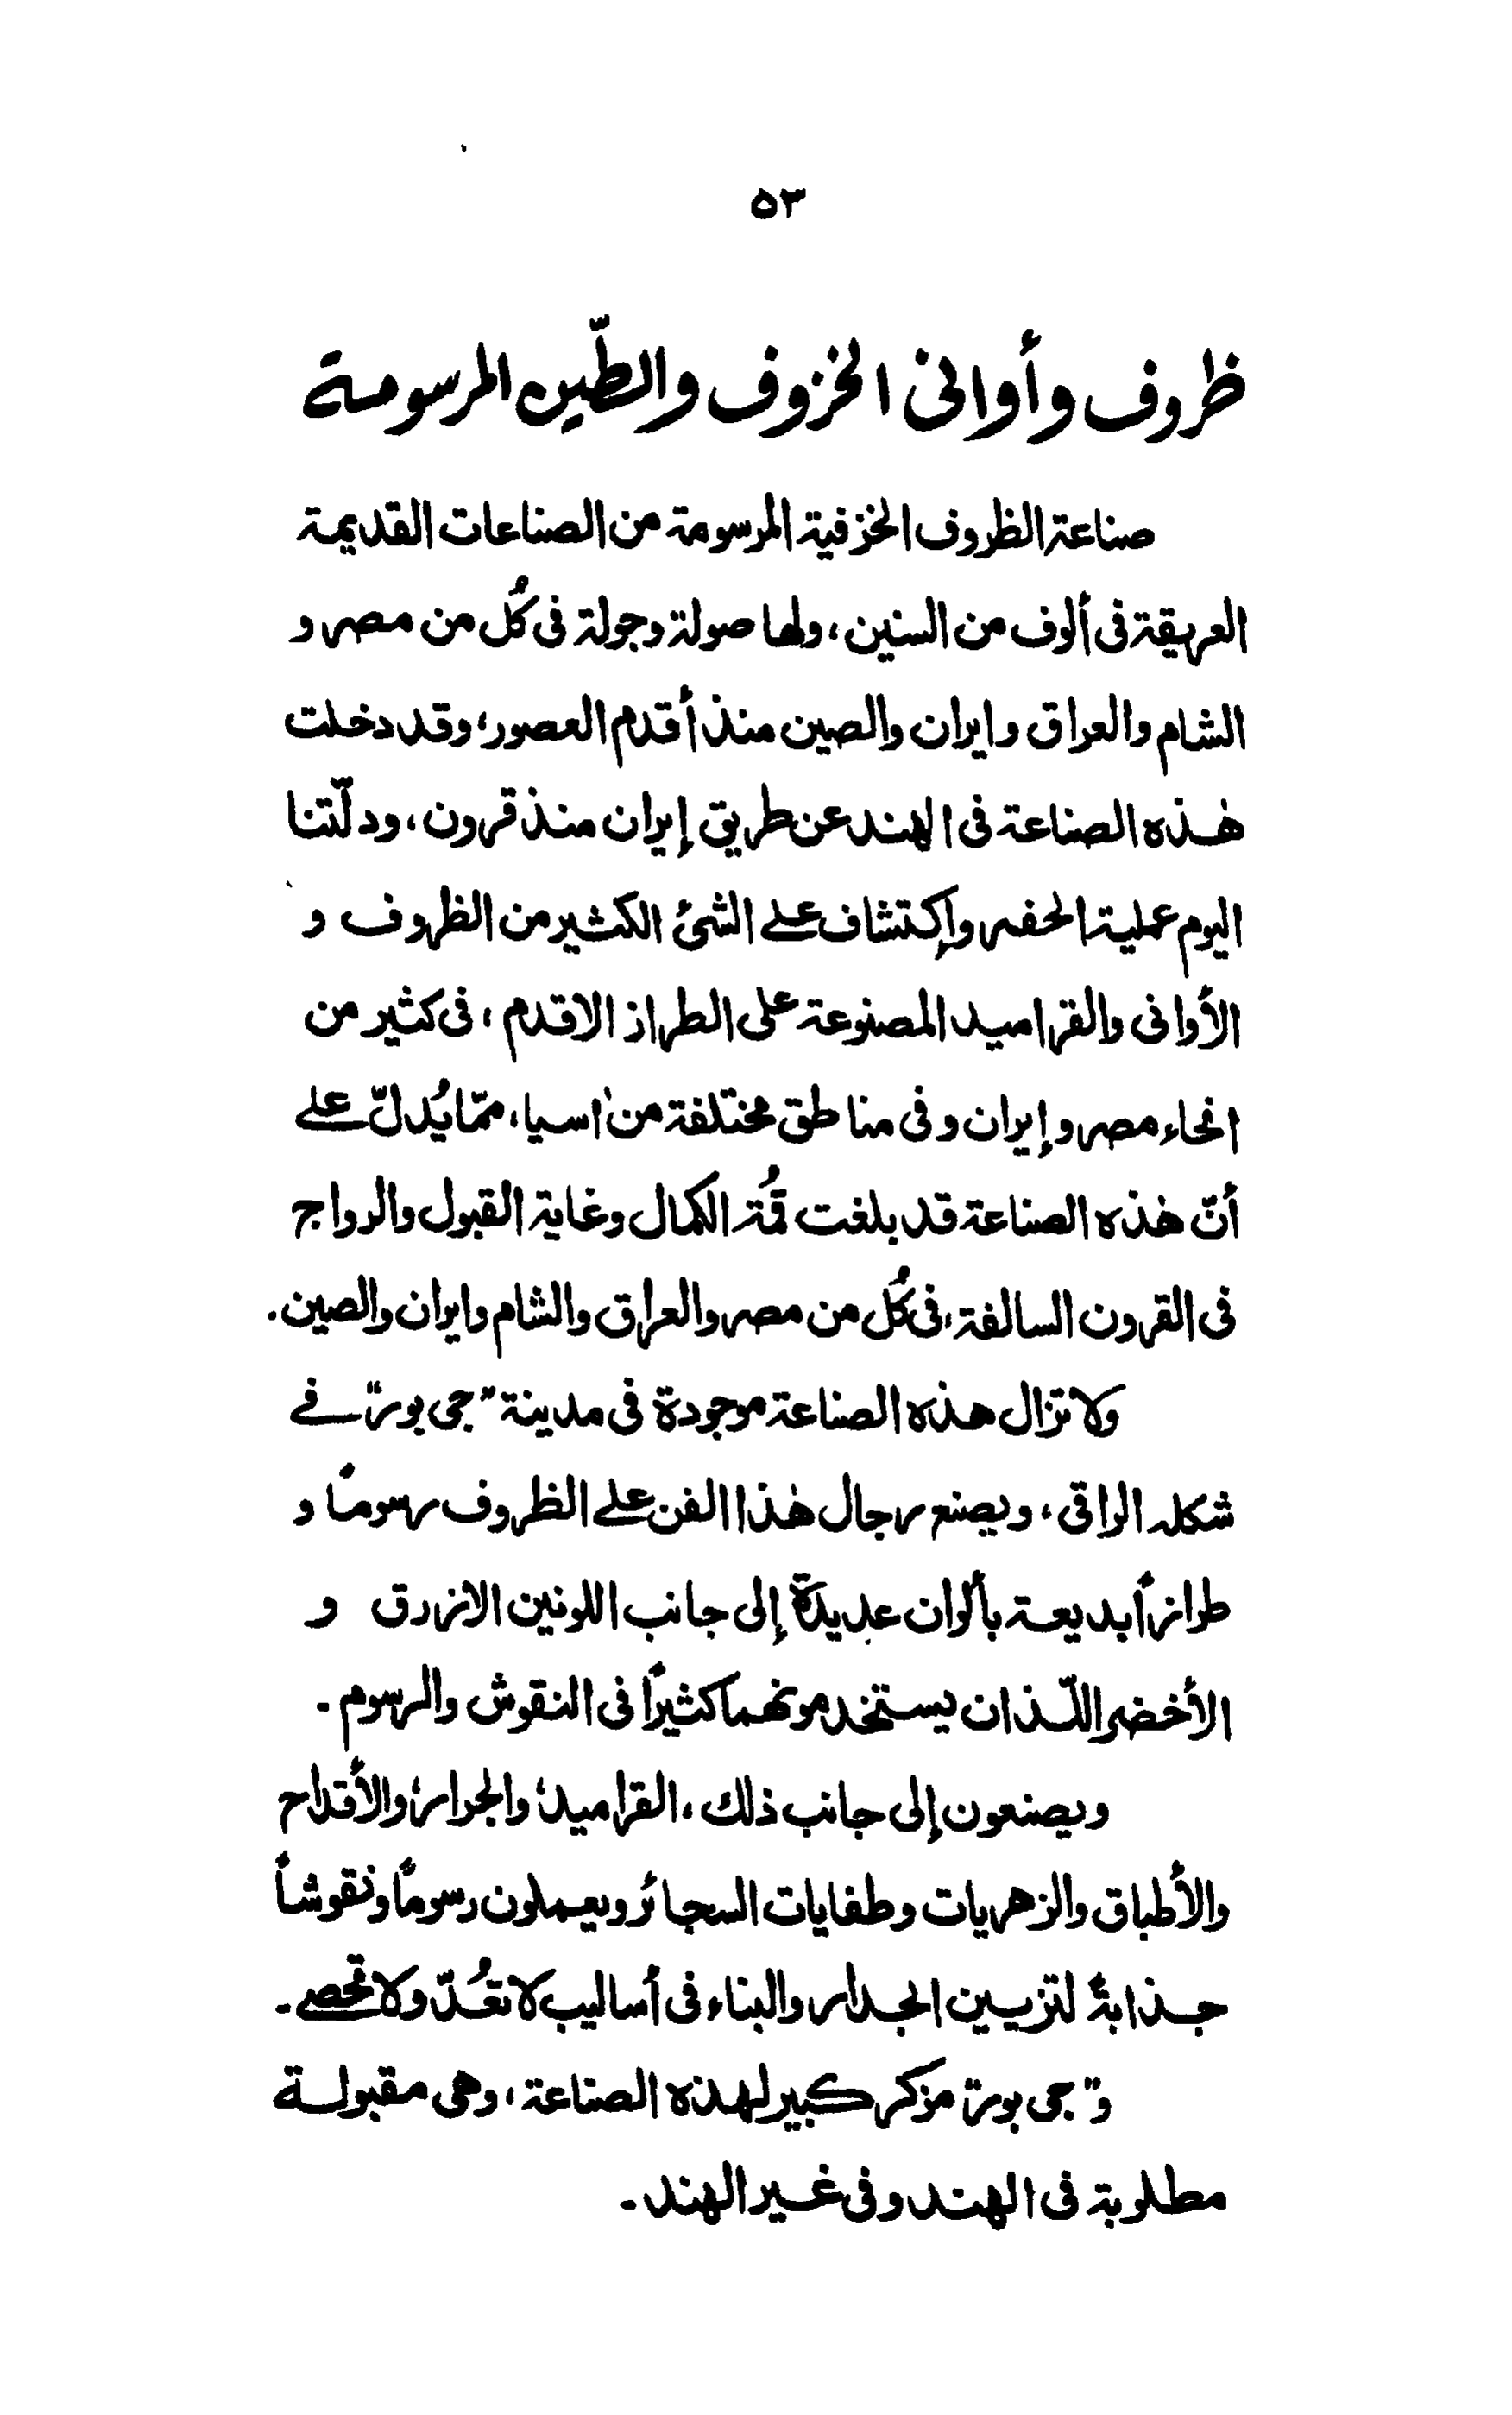 ٥٣
ظروف وأوانى الخزوف والطّين المرسومة
صناعة الظروف الخزفية المرسومة من الصناعات القديمة
العريقة فى ألوف من السنين، ولها صولة وجولة فى كُل من مصر و
الشام والعراق وايران والصين منذ أقدم العصور، وقد دخلت
هٰذه الصناعة فى الهند عن طريق إيران منذ قرون، ودلّتنا
اليوم عملية الحفر وإكتشاف على الشئ الكثير من الظروف و
الأوانى والقراميد المصنوعة على الطراز الاقدم، فى كثير من
انحاء مصر وإيران وفى مناطق مختلفة من اٰسيا، ممّا يُدلّ على
أنّ هٰذه الصناعة قد بلغت قمُة الكمال وغاية القبول والرواج
فى القرون السالفة، فى كُل من مصر والعراق والشام وايران والصين.
ولا تزال هذه الصناعة موجودة فى مدينة "جى بور" فى
شكله الراقى، ويصنع رجال هٰذا الفن على الظروف رسومًا و
طرازاً بديعة بألوان عديدة إلى جانب اللونين الازرق و
الأخضر اللّذان يستخدمونهما كثيرًا فى النقوش والرسوم۔
ويصنعون إلى جانب ذلك، القراميد، والجرار، والأقداح
والأطباق والزهريات وطفايات السجائر ويعملون رسومًا ونقوشاً
جذابةً لتزيين الجدار والبناء فى أساليب لا تعُدّ ولا تحصى۔
و"جى بور" مركز كبير لهذه الصناعة، وهى مقبولة
مطلوبة فى الهند وفى غير الهند۔